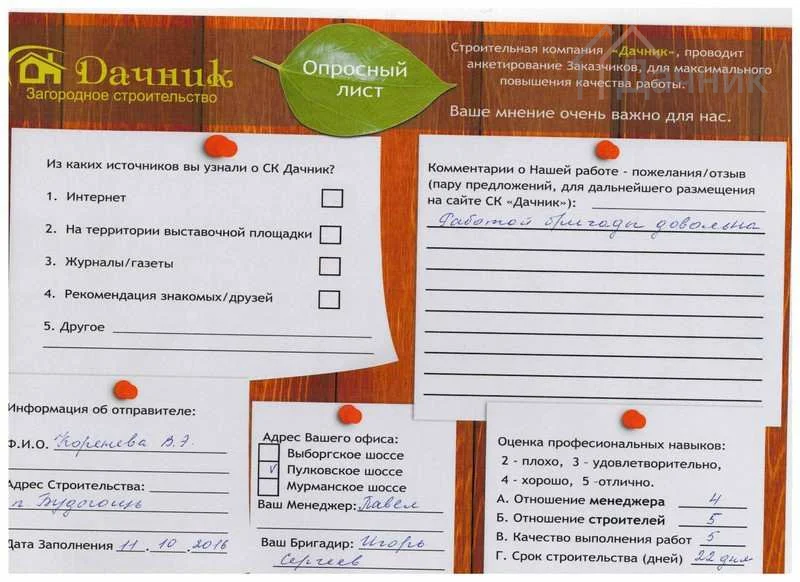 Дачник
Загородное строительство
Опросный
лист
Строительная компания «Дачник», проводит
анкетирование Заказчиков, для максимального
повышения качества работы.
Дачник
Ваше мнение очень важно для нас.
Из каких источников вы узнали о СК Дачник?
1. Интернет
2. На территории выставочной площадки
3. Журналы/газеты
4. Рекомендация знакомых/друзей
5. Другое
Комментарии о Нашей работе - пожелания/отзыв
(пару предложений, для дальнейшего размещения
на сайте СК «Дачник»):
Работой бригады довольна
Информация об отправителе:
Ф.И.О. Коренева В.Э.
Адрес Строительства:
п. Будогощь
Дата Заполнения 11.10.2016
Адрес Вашего офиса:
Выборгское шоссе
V Пулковское шоссе
Мурманское шоссе
Ваш Менеджер: Павел
Ваш Бригадир: Игорь
Сергеев
Оценка професиональных навыков:
2 - плохо, 3 - удовлетворительно,
4 - хорошо, 5 -отлично.
А. Отношение менеджера 4
Б. Отношение строителей 5
В. Качество выполнения работ 5
Г. Срок строительства (дней) 22 дня